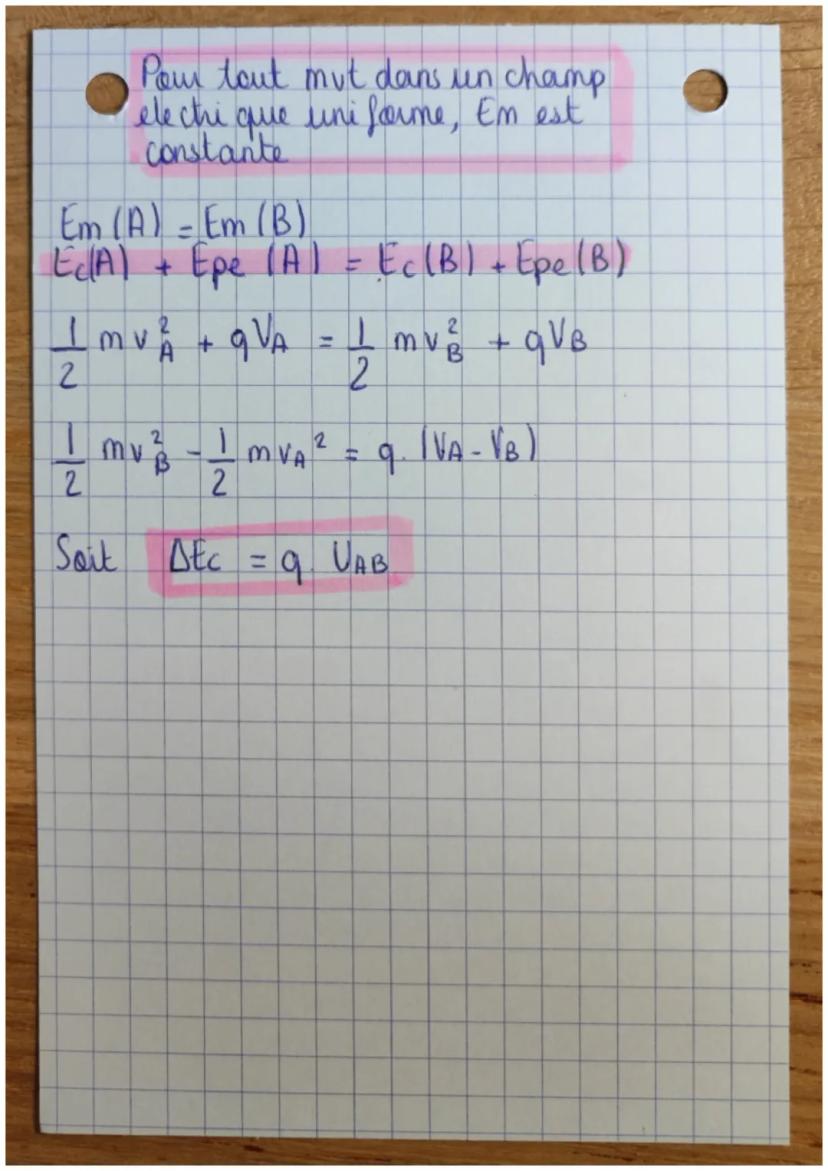 Pour tout mvt dans un champ
electrique uniforme, Em est
constante
Em (A) = Em (B)
Ec(A) + Epe (A) = Ec (B) + Epe (B)
1/2 m v²_A + qV_A = 1/2 m v²_B + qV_B
1/2 m v²_B - 1/2 m v_A² = q. (V_A - V_B)
Soit ΔEc = q. U_AB